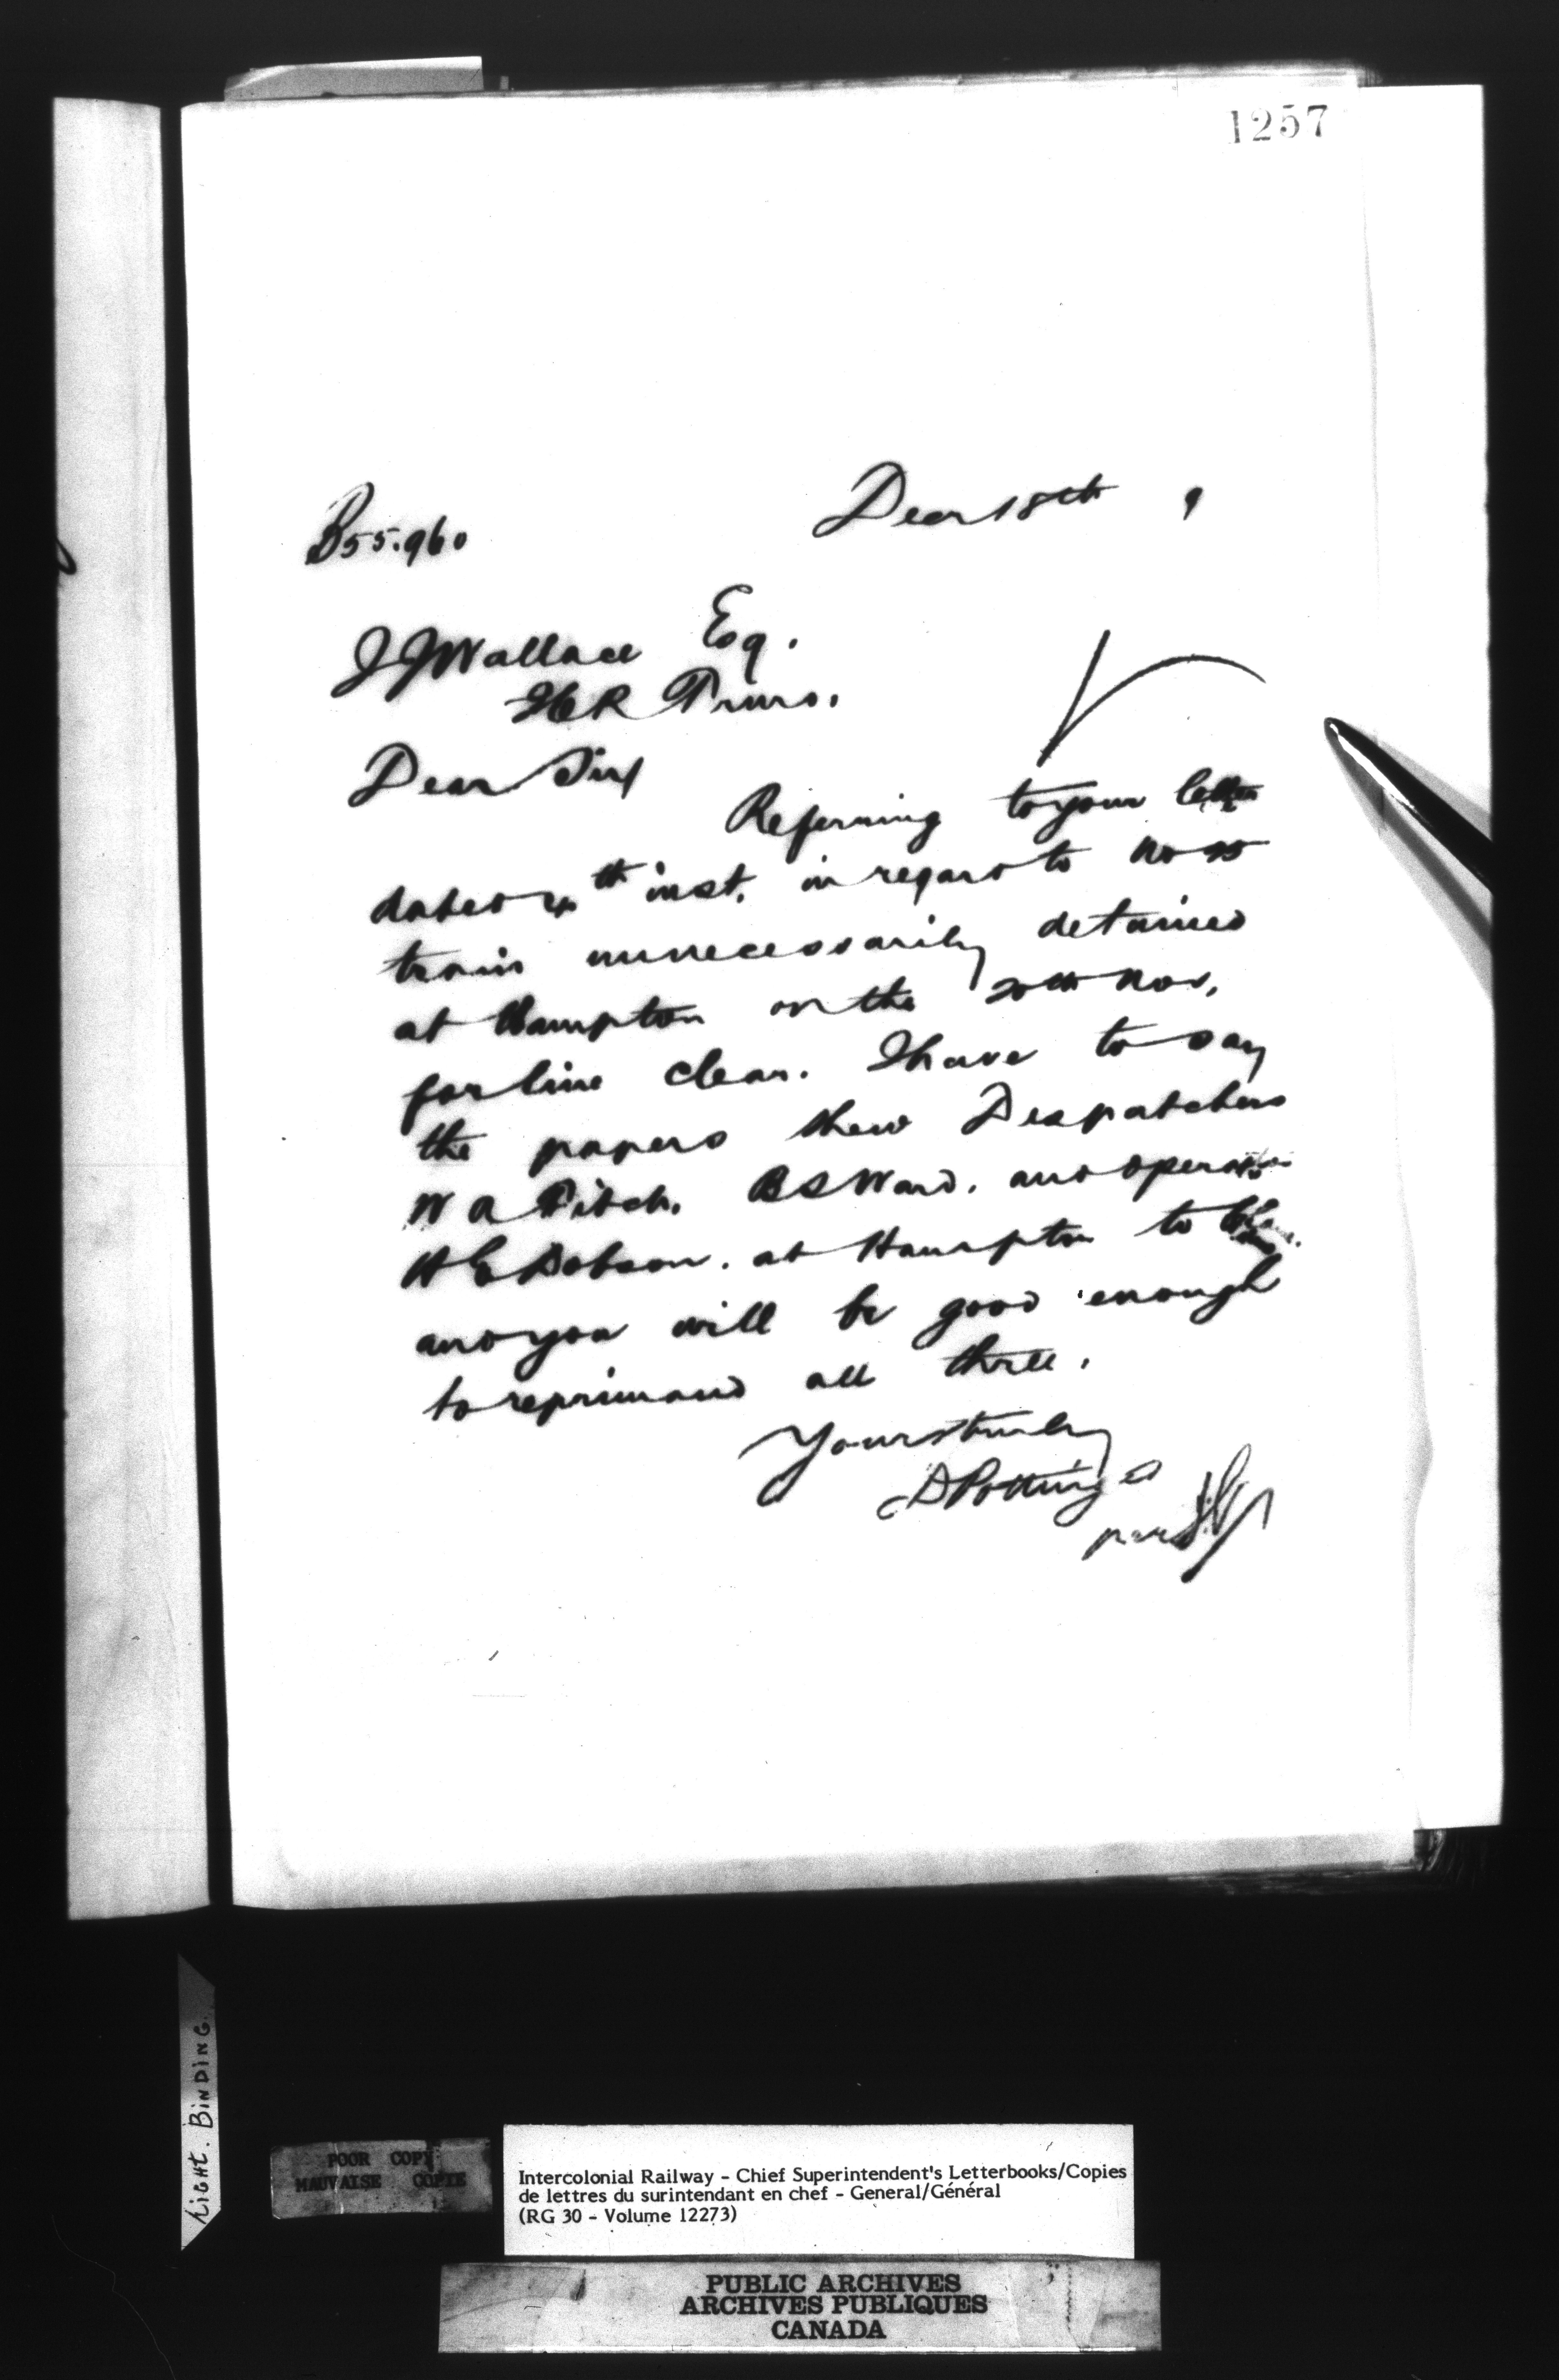 1257
Decr 18th 9
B55.960
J J Wallace Esq.
ICR Truro.
Dear Sir
Referring to your letter
dated th inst. in regard to No
train unnecessarily detained
at Hampton on the 20th Nov.
for line clear. I have to say
the papers shew Despatchers
W A Fitch. B S Ward. and operator
H E Dobson. at Hampton to
and you will be good enough
to reprimand all three.
Yours truly
D Pottinger
per
Light. Binding.
POOR COPY
MAUVAISE COPIE
Intercolonial Railway - Chief Superintendent's Letterbooks/Copies
de lettres du surintendant en chef - General/Général
(RG 30 - Volume 12273)
PUBLIC ARCHIVES
ARCHIVES PUBLIQUES
CANADA